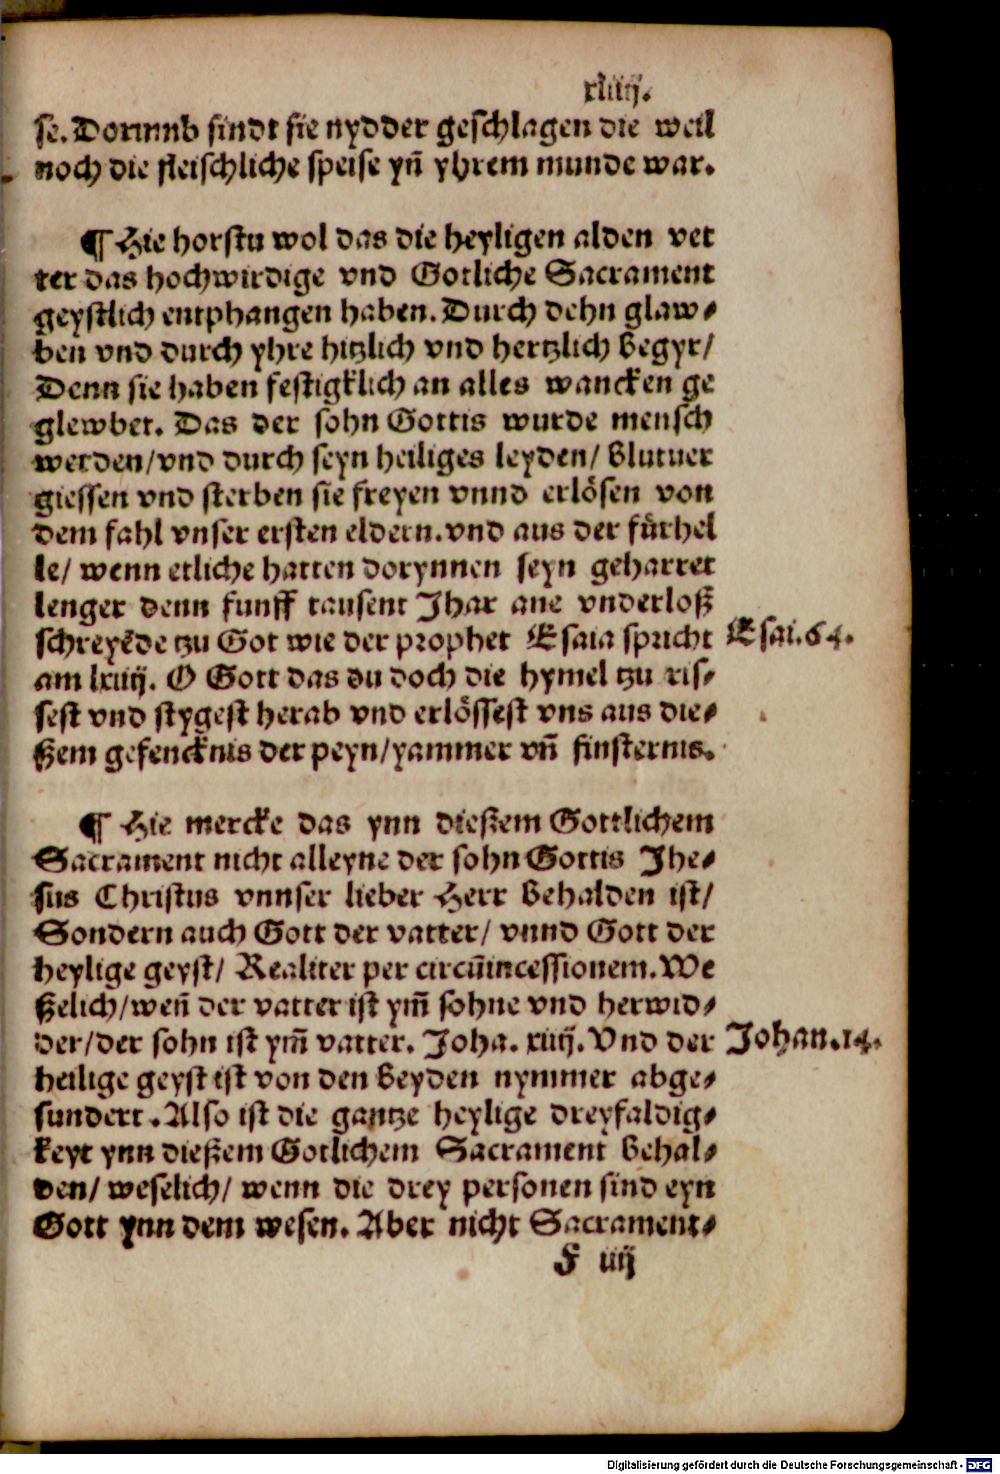 xliiij.
se. Dorumb sindt sie nydder geschlagen die weil
noch die fleischliche speise yn̄ yhrem munde war.
¶ Hie horstu wol das die heyligen alden vet
ter das hochwirdige vnd Gotliche Sacrament
geystlich entphangen haben. Durch dehn glaw⸗
ben vnd durch yhre hitzlich vnd hertzlich begyr/
Denn sie haben festigklich an alles wancken ge
glewbet. Das der sohn Gottis wurde mensch
werden/vnd durch seyn heiliges leyden/ blutuer
giessen vnd sterben sie freyen vnnd erlösen von
dem fahl vnser ersten eldern. vnd aus der fürhel
le/ wenn etliche hatten dorynnen seyn geharret
lenger denn funff tausent Jhar ane vnderloß
schreyēde tzu Got wie der prophet Esaia spricht
Esai. 64.
am lxiiij. O Gott das du doch die hymel tzu ris⸗
sest vnd stygest herab vnd erlössest vns aus die⸗
ßem gefencknis der peyn/yammer vn̄ finsternis.
¶ Hie mercke das ynn dießem Gottlichem
Sacrament nicht alleyne der sohn Gottis Jhe⸗
sus Christus vnnser lieber Herr behalden ist/
Sondern auch Gott der vatter/ vnnd Gott der
heylige geyst/ Realiter per circūincessionem. We
ßelich/wen̄ der vatter ist ym̄ sohne vnd herwid⸗
der/der sohn ist ym̄ vatter. Joha. xiiij. Vnd der
Johan. 14.
heilige geyst ist von den beyden nymmer abge⸗
sundert. Also ist die gantze heylige dreyfaldig⸗
keyt ynn dießem Gotlichem Sacrament behal⸗
den/ weselich/ wenn die drey personen sind eyn
Gott ynn dem wesen. Aber nicht Sacrament⸗
F iiij
Digitalisierung gefördert durch die Deutsche Forschungsgemeinschaft - DFG